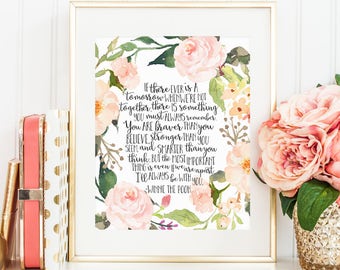 IF there EVER IS A
tomorrow WHEN WE'RE NOT
together, there IS something
YOU must ALWAYS remember.
YOU ARE braver THAN YOU
BELIEVE, stronger THAN YOU
SEEM, and SMARTER than you
think. BUT THE MOST IMPORTANT
THING IS, even IF WE are apart...
I'll ALWAYS be WITH you.
-WINNIE THE POOH